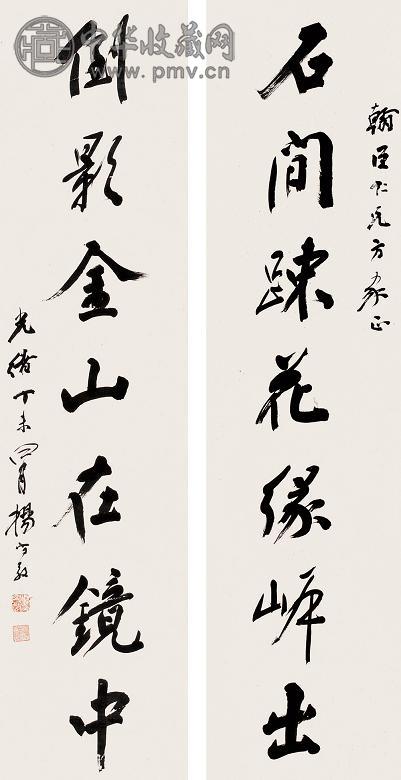 中华收藏网
www.pmv.cn
翰臣仁兄方家正
石間踈花緣岸出
倒影金山在鏡中
光緒丁未四月楊守敬